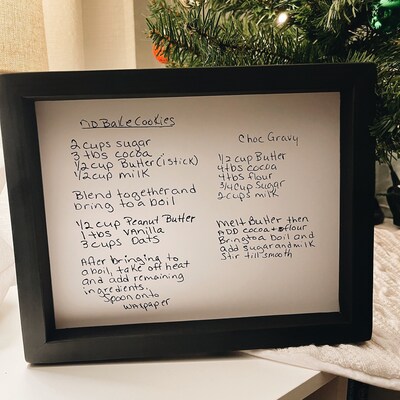 NO Bake Cookies
2 cups sugar
3 tbs cocoa
1/2 cup Butter (1 stick)
1/2 cup milk
Blend together and
bring to a boil
1/2 cup Peanut Butter
1 tbs vanilla
3 cups Oats
After bringing to
a boil, take off heat
and add remaining
ingredients.
Spoon onto
waxpaper
Choc Gravy
1/2 cup Butter
4 tbs cocoa
4 tbs flour
3/4 cup Sugar
2 cups milk
Melt Butter then
ADD cocoa + flour
Bring to a boil and
add sugar and milk
Stir till smooth